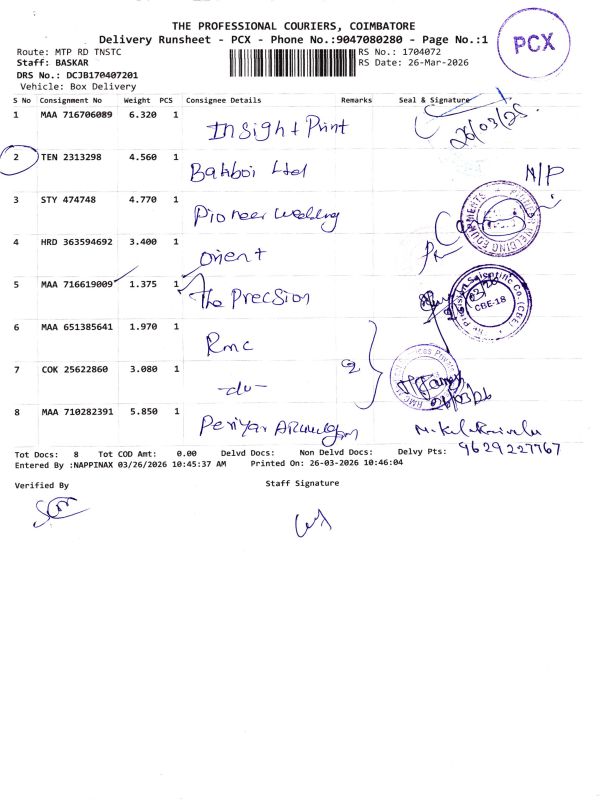 THE PROFESSIONAL COURIERS, COIMBATORE
Delivery Runsheet - PCX - Phone No.:9047080280 - Page No.:1
PCX
Route: MTP RD TNSTC
RS No.: 1704072
Staff: BASKAR
RS Date: 26-Mar-2026
DRS No.: DCJB170407201
Vehicle: Box Delivery
S No Consignment No Weight PCS Consignee Details Remarks Seal & Signature
1 MAA 716706089 6.320 1 Insight Print
26/03/26
2 TEN 2313298 4.560 1 Bahboi Ltd
N/P
3 STY 474748 4.770 1 Pioneer Welding
4 HRD 363594692 3.400 1 Orient
5 MAA 716619009 1.375 1 The Precsion
CBE-18
6 MAA 651385641 1.970 1 Rmc
2
7 COK 25622860 3.080 1 -do-
26/03/26
8 MAA 710282391 5.850 1 Periyar Arumugam
9629227767
Tot Docs: 8 Tot COD Amt: 0.00 Delvd Docs: Non Delvd Docs: Delvy Pts:
Entered By :NAPPINAX 03/26/2026 10:45:37 AM Printed On: 26-03-2026 10:46:04
Verified By
Staff Signature